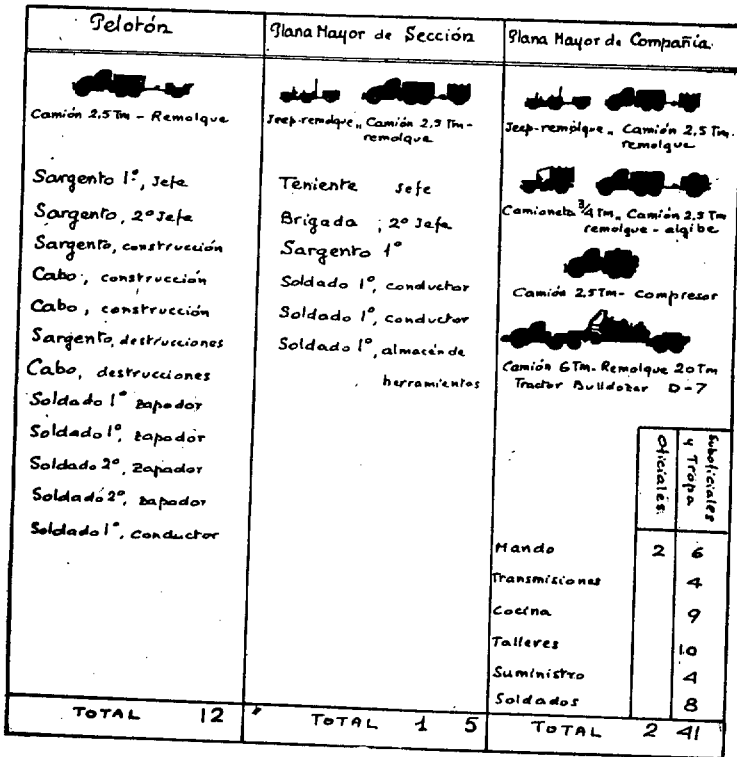 Pelotón
Camión 2,5 Tm - Remolque
Sargento 1º, Jefe
Sargento, 2º Jefe
Sargento, construcción
Cabo, construcción
Cabo, construcción
Sargento, destrucciones
Cabo, destrucciones
Soldado 1º zapador
Soldado 1º, zapador
Soldado 2º, zapador
Soldado 2º, zapador
Soldado 1º, conductor
TOTAL 12
Plana Mayor de Sección
Jeep-remolque,, Camión 2,5 Tm-
remolque
Teniente Jefe
Brigada, 2º Jefe
Sargento 1º
Soldado 1º, conductor
Soldado 1º, conductor
Soldado 1º, almacén de
herramientas
TOTAL 1 5
Plana Mayor de Compañía
Jeep-remolque,, Camión 2,5 Tm.
remolque
Camioneta 3/4 Tm,, Camión 2,5 Tm
remolque - algibe
Camión 2,5 Tm - Compresor
Camión 6 Tm. Remolque 20 Tm
Tractor Bulldozer D-7
Oficiales.
Suboficiales
y Tropa
Mando 2 6
Transmisiones 4
Cocina 9
Talleres 10
Suministro 4
Soldados 8
TOTAL 2 41